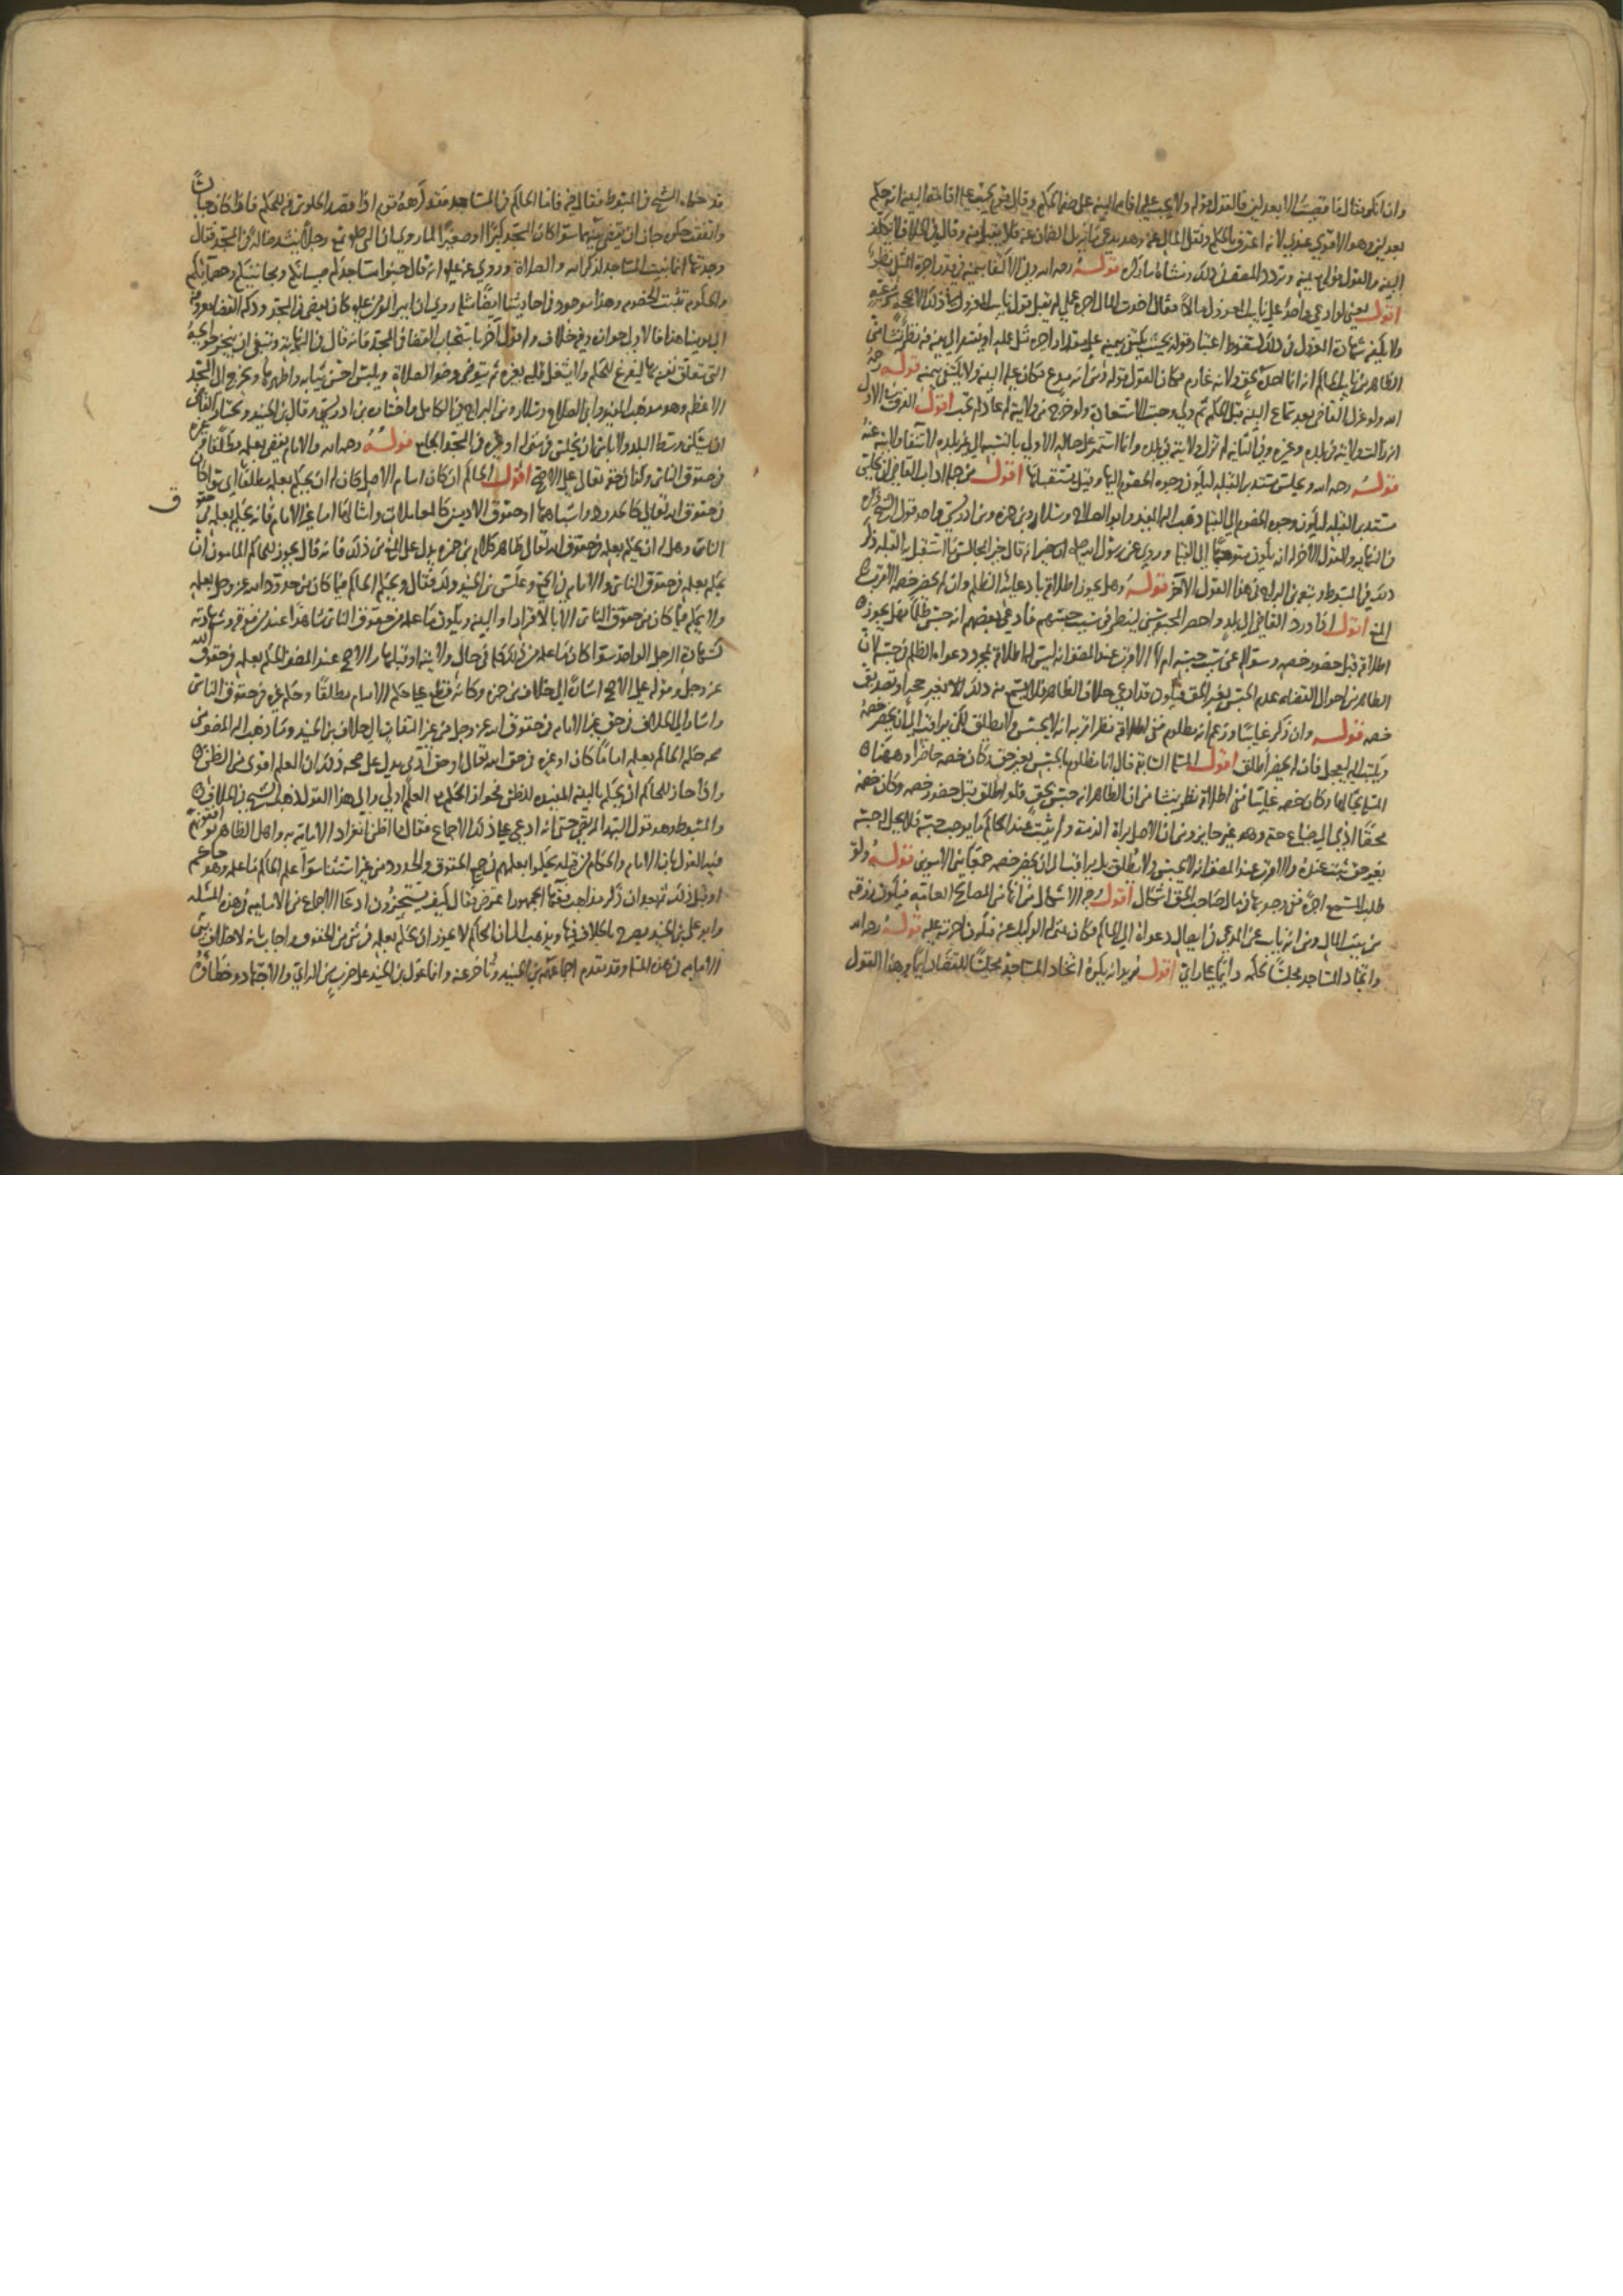 وان انكر فقال ما قبضت الا بعدلين فالقول قوله ولا يجب على اقامة البينة على صفة الحكم وقال قوم يجب عليه اقامة البينة انه حكم
بعدلين وهو الاقوى عندي لانه اعترف بالحكم ونقل المال عنه وهو يدعي ما يزيل الضمان عنه فلا يقبل منه وقال في الخلاف لا يكلف
البينة والقول قوله مع يمينه وتردد المصنف في ذلك ومنشأه ما ذكره قوله رحمه الله وفي الاكتفاء بيمينه في قدر اجرة المثل نظر
اقول يعني لو ادعى واحد على نايب المعزول مالا فقال اخذت المال اجرة عملي لم يقبل قول نايب المعزول
ولا يكفي شهادة المعزول في ذلك لسقوط اعتبار قوله بحيث يكتفى بيمينه على مقدار اجرة مثل عمله او يفتقر الى بينة فيه نظر ينشأ من
الظاهر من نايب الحاكم انه انما اخذ بحق ولانه غارم فكان القول قوله ومن انه مدع فكان عليه البينة ولا يكتفى بيمينه قوله رحمه
الله ولو عزل القاضي بعد سماع البينة قبل الحكم ثم ولي وجبت الاستعادة ولو خرج من ولايته ثم عاد لم تجب اقول الفرق ان الاول
انه زالت ولايته في بلده وغيره وفي الثانية لم تزل ولايته في بلده وانما استمر على حاله الاولى بالنسبة الى غير بلده لانتفاء ولايته عنه
قوله رحمه الله ويجلس مستدبر القبلة ليكون وجوه الخصوم اليها وقيل يستقبلها اقول من جملة اداب القاضي ان يجلس
مستدبر القبلة ليكون وجوه الخصوم الى القبلة ذهب اليه المفيد وابو الصلاح وسلار وبن حمزة وبن ادريس وهو احد قول الشيخ ذكره
في النهاية والقول الاخر انه يكون متوجها الى القبلة وروي عن رسول الله صلى الله عليه انه قال خير المجالس ما استقبل به القبلة ذكر
ذلك في المبسوط وتبعه بن البراج في هذا القول الاخر قوله وهل يجوز اطلاقه بادعائه الظلم وان لم يحضر خصمه الاقرب
المنع اقول اذا ورد القاضي الى بلد واحضر المحبوسين لينظر في سبب حبسهم فادعى بعضهم انه حبس ظلما فهل يجوز
اطلاقه قبل حضور خصمه وسؤاله عن سبب حبسه ام لا الاقرب عند المصنف انه ليس له اطلاقه بمجرد دعواه الظلم في حبسه لان
الظاهر من احوال القضاة عدم الحبس بغير الحق فيكون قد ادعى خلاف الظاهر فلا يسمع منه ذلك الا بغير حجة او تصديق
خصمه قوله وان ذكر غايبا وزعم انه مظلوم ففي اطلاقه نظر اقربه انه لا يحبس ولا يطلق لكن يراقب الى ان يحضر خصمه
ويكتب اليه ليعجل فان لم يحضر اطلق اقول المسئلة السابقة قال انا مظلوم بالحبس بغير حق وكان خصمه حاضرا وههنا
المسئلة بحالها وكان خصمه غايبا ففي اطلاقه نظر ينشأ من ان الظاهر انه حبس بحق فلو اطلق قبل حضور خصمه وكان خصمه
محقا ادى الى ضياع حقه وهو غير جايز ومن ان الاصل براءة الذمة ولم يثبت عند الحاكم ما يوجب حبسه فلا يحل حبسه
بغير حق يثبت عنده والاقرب عند المصنف انه لا يحبس ولا يطلق بل يراقب الى ان يحضر خصمه جمعا بين الامرين قوله ولو
طلب المسمع اجرة ففي وجوبها في مال صاحب الحق اشكال اقول وجه الاشكال من انها من المصالح العامة فيكون رزقه
من بيت المال ومن انه نايب عن المدعي في ايصال دعواه الى الحاكم فكان بمنزلة الوكيل عنه فيكون اجرته عليه قوله رحمه الله
واتخاذ المساجد مجلسا لحكمه دائما على راي اقول يريد انه يكره اتخاذ المساجد مجلسا للقضاء دائما وهذا القول
قد حكاه الشيخ في المبسوط فقال فيه فاما الحاكم في المساجد فقد كرهه قوم اذا قصد الجلوس فيه للحكم فاذا كان جالسا
واتفقت حكومة جاز ان يقضي بينهما سواء كان المسجد كبيرا او صغيرا لما روي ان النبي صلى الله عليه سمع رجلا ينشد ضالة في المسجد فقال لا
وجدتها انما بنيت المساجد لذكر الله والصلاة وروي عنه عليه انه قال جنبوا مساجدكم صبيانكم ومجانينكم وخصوماتكم
والحكومة تثبت الخصومة وهذا موجود في احاديثنا ايضا مثله وروي ان امير المؤمنين عليه كان يقضي في المسجد ودكة القضاء معروفة
الى يومنا هذا فالاول جوازه وفيه خلاف واقول اخر باستحباب القضاء في المسجد فانه قال في النهاية وينبغي ان ينجز حوايجه
التي تتعلق نفسه بها ليفرغ للحكم ولا يشتغل قلبه بغيره ثم يتوضى وضوء الصلاة ويلبس احسن ثيابه واطهرها ويخرج الى المسجد
الاعظم وهو مذهب المفيد وابي الصلاح وسلار وبن البراج في الكامل واختاره بن ادريس وقال بن الجنيد ونختار للقاضي
ان يسكن وسط البلد ولا بأس ان يجلس في منزله او غيره في المسجد الجامع قوله رحمه الله والامام يقضي بعلمه مطلقا وغيره
في حقوق الناس وكذا في حقه تعالى على الاصح اقول الحاكم ان كان امام الاصل كان له ان يحكم بعلمه مطلقا اي سواء كان
في حقوق الله تعالى كالحدود واشباهها او حقوق الادميين كالمعاملات وامثالها اما غير الامام فانه يحكم بعلمه في حقوق
الناس وهل له ان يحكم بعلمه في حقوق الله تعالى ظاهر كلام بن حمزة يدل على المنع من ذلك فانه قال يجوز للحاكم المامون ان
يحكم بعلمه في حقوق الناس والامام في الجميع وعكس بن الجنيد ذلك فقال ويحكم الحاكم فيما كان من حدود الله عز وجل بعلمه
ولا يحكم فيما كان من حقوق الناس الا بالاقرار او البينة ويكون ما علمه من حقوق الناس شاهدا عند من فوقه وشهادته
كشهادة الرجل الواحد سواء كان ما علمه من ذلك كله في حال ولايته او قبلها والاصح عند المصنف الحكم بعلمه في حقوق الله
عز وجل وقوله على الاصح اشارة الى خلاف بن حمزة وكانه قطع على حكم الامام مطلقا وحكم غيره في حقوق الناس
واشار الى الخلاف في حق غير الامام في حقوق الله عز وجل من غير التفات الى خلاف بن الجنيد وما ذهب اليه المصنف من
صحة حكم الحاكم بعلمه اماما كان او غيره في حق الله تعالى او حق آدمي يدل على صحته ذلك ان العلم اقوى من الظن
واذا جاز للحاكم ان يحكم بالبينة المفيدة للظن فجواز الحكم مع العلم اولى والى هذا القول ذهب الشيخ في الخلاف
والمبسوط وهو قول السيد المرتضى حتى انه ادعى على ذلك الاجماع فقال مما اظن انفراد الامامية به واهل الظاهر يوافقونهم
فيه القول بان للامام والحكام من قبله ان يحكموا بعلمهم في جميع الحقوق والحدود من غير استثناء سواء علم الحاكم ما علمه وهو حاكم
او قبل ذلك ثم بعد ان ذكر مذاهب فقهاء الجمهور اعترض فقال كيف يستجيزون ادعاء الاجماع من الامامية في هذه المسئلة
وابو علي بن الجنيد يصرح بالخلاف فيها ويذهب الى ان الحاكم لا يجوز ان يحكم بعلمه في شيء من الحقوق واجاب بانه لا خلاف بين
الامامية في هذه المسئلة وقد تقدم اجماعهم بن الجنيد وتأخر عنه وانما عول بن الجنيد على ضرب من الراي والاجتهاد وخطاؤه
ق